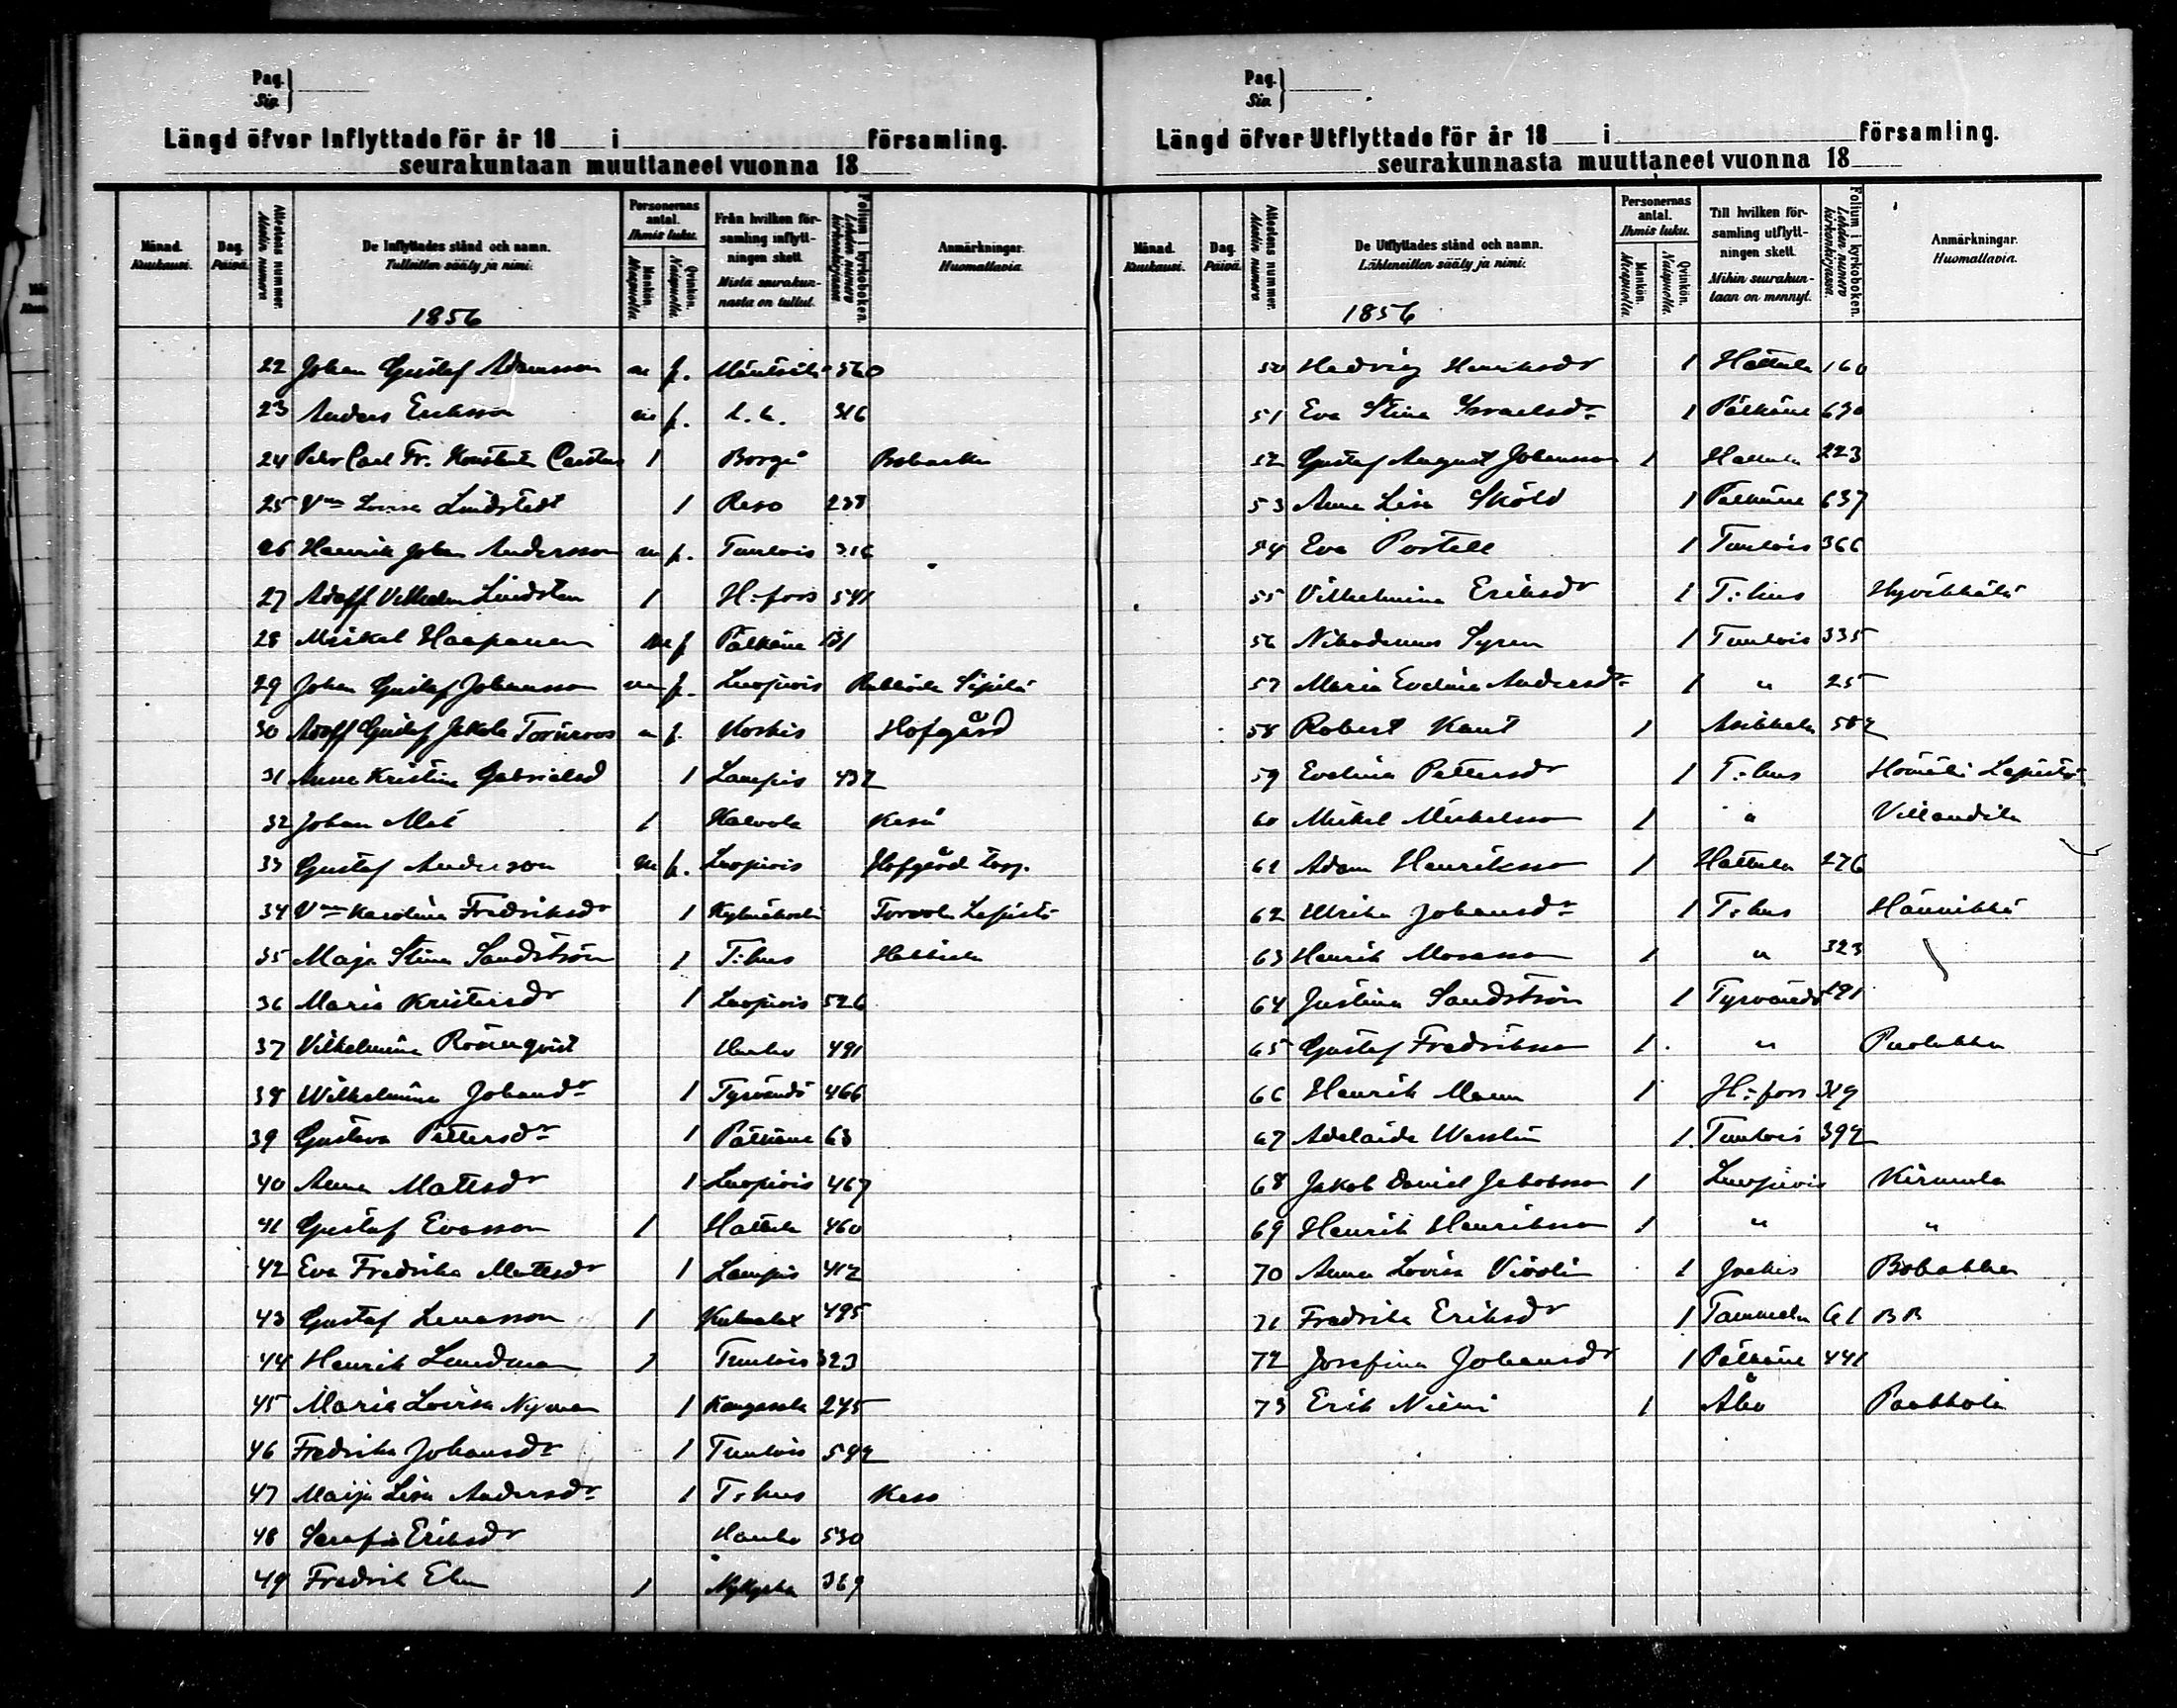 Pag.
Siv.
Längd öfver Inflyttade för år 18 i församling.
seurakuntaan muuttaneet vuonna 18
Månad. Kuukausi.
Dag. Päivä.
Attestens nummer. Attestin numero
De Inflyttades stånd och namn.
Tulleitten sääty ja nimi.
1856
Personernas antal. Ihmis luku.
Mankön. Miespuolta.
Qvinkön. Naispuolta.
Från hvilken församling inflyttningen skett.
Mistä seurakunnasta on tullut.
Folium i kyrkoboken. Lehden numero kirkonkirjassa
Anmärkningar.
Huomattavia.
22 Johan Gustaf Adamsson m f. 360
23 Anders Eriksson m f. 316
24 Carl Fr. 1 Borgå
25 Lovisa Lindstedt 1 Reso
26 Henrik Johan Andersson m f. Tuulois 316
27 Adolf Vilhelm Lindsten 1 H:fors 541
28 Mickel Haapanen m f Pälkäne 131
29 Johan Gustaf Johansson m f. Luopiois
30 Adolf Gustaf Törnroos m f. Koskis Hofgård
31 Anna Kristina Gabrielsd 1 Lampis 432
32 Johan Mat 1 Kalvola
33 Gustaf Andersson m f. Luopiois Hofgård torp.
34 Karolina Fredriksdr 1 Kylmäkoski
35 Maja Stina Sandström 1 T:hus
36 Maria Kristersdr 1 Luopiois 526
37 Vilhelmina Rosenqvist Hauho 491
38 Wilhelmina Johansdr 1 Tyrvändö 466
39 Gustava Pettersdr 1 Pälkäne 63
40 Anna Mattsdr 1 Luopiois 467
41 Gustaf Evasson 1 Hattula 460
42 Eva Fredrika Mattsdr 1 Lampis 412
43 Gustaf Lenasson 1 Kulsialax 495
44 Henrik Lundman 1 Tuulois 323
45 Maria Lovisa Nyman 1 Kangasala 245
46 Fredrika Johansdr 1 Tuulois 592
47 Maija Lisa Andersdr 1 T:hus
48 Serafia Eriksdr Hauho 530
49 Fredrik Elm 1 Nykyrka 369
Pag.
Siv.
Längd öfver Utflyttade för år 18 i församling.
seurakunnasta muuttaneet vuonna 18
Månad. Kuukausi.
Dag. Päivä.
Attestens nummer. Attestin numero
De Utflyttades stånd och namn.
Lähteneitten sääty ja nimi.
1856
Personernas antal. Ihmis luku.
Mankön. Miespuolta.
Qvinkön. Naispuolta.
Till hvilken församling utflyttningen skett.
Mihin seurakuntaan on mennyt.
Folium i kyrkoboken. Lehden numero kirkonkirjassa.
Anmärkningar.
Huomattavia.
50 Hedvig Henriksdr 1 Hattula 160
51 Eva Stina Israelsdr 1 Pälkäne 630
52 Gustaf August Johansson 1 Hattula 223
53 Anna Lisa Sköld 1 Pälkäne 637
54 Eva Portell 1 Tuulois 366
55 Vilhelmina Eriksdr 1 T:hus Hyvikkälä
56 Nikodemus Syren 1 Tuulois 335
57 Maria Evelina Andersdr 1 " 25
58 Robert Kant 1 Asikkala 582
59 Evelina Pettersdr 1 T:hus
60 Mickel Mickelsson 1 "
61 Adam Henriksson 1 Hattula 276
62 Ulrika Johansdr 1 T:hus Hännikkä
63 Henrik Mosesson 1 " 323
64 Justina Sandström 1 Tyrvändö 191
65 Gustaf Fredriksson 1 "
66 Henrik Mann 1 H:fors 319
67 Adelaide Wesslin 1 Tuulois 392
68 Jakob Daniel Jakobsson 1 Luopiois
69 Henrik Henriksson 1 " "
70 Anna Lovisa 1 Jockis
71 Fredrika Eriksdr 1 Tammela 61 BB
72 Josefina Johansdr 1 Pälkäne 441
73 Erik Niemi 1 Åbo